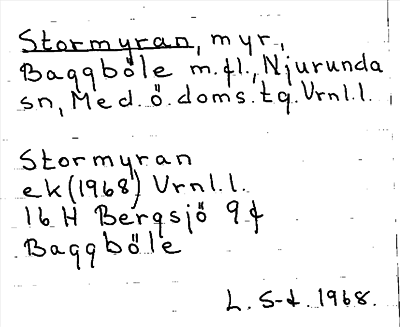 Stormyran, myr.,
Baggböle m.fl., Njurunda
sn, Med. ö. doms. tg. Vrnl.l.
Stormyran
ek (1968) Vrnl.l.
16 H Bergsjö 9 f
Baggböle
L. S-d. 1968.